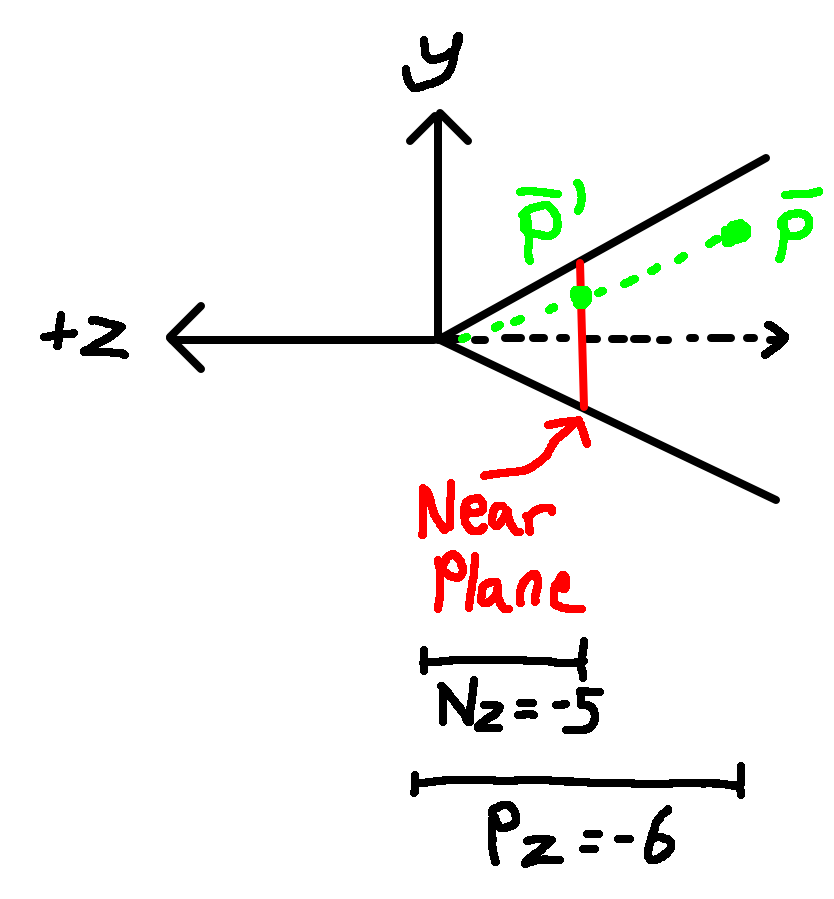 y
p̅'
p̅
+z
Near
Plane
Nz=-5
Pz=-6